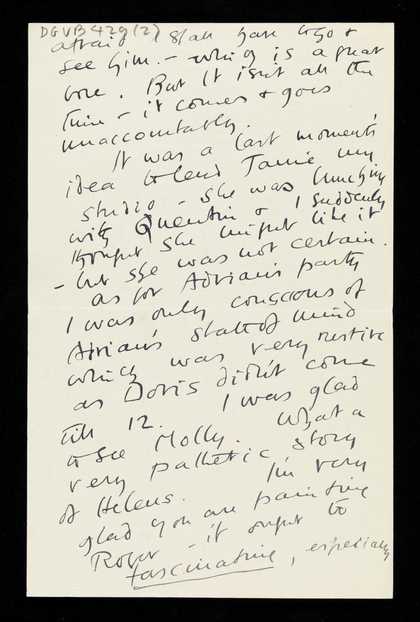 DGVB429(2)
afraid I shall have to go &
see him. – which is a great
bore. But it isnt all the
time – it comes & goes
unaccountably.
It was a last moments
idea to lend Janie my
studio – she was lunching
with Quentin & I suddenly
thought she might like it
– but she was not certain.
as for Adrian's party
I was only conscious of
Adrian's state of mind
which was very restive
as Doris didn't come
till 12. I was glad
to see Molly. What a
very pathetic story
of Helens. I'm very
glad you are painting
Roger – it ought to
fascinating, especially